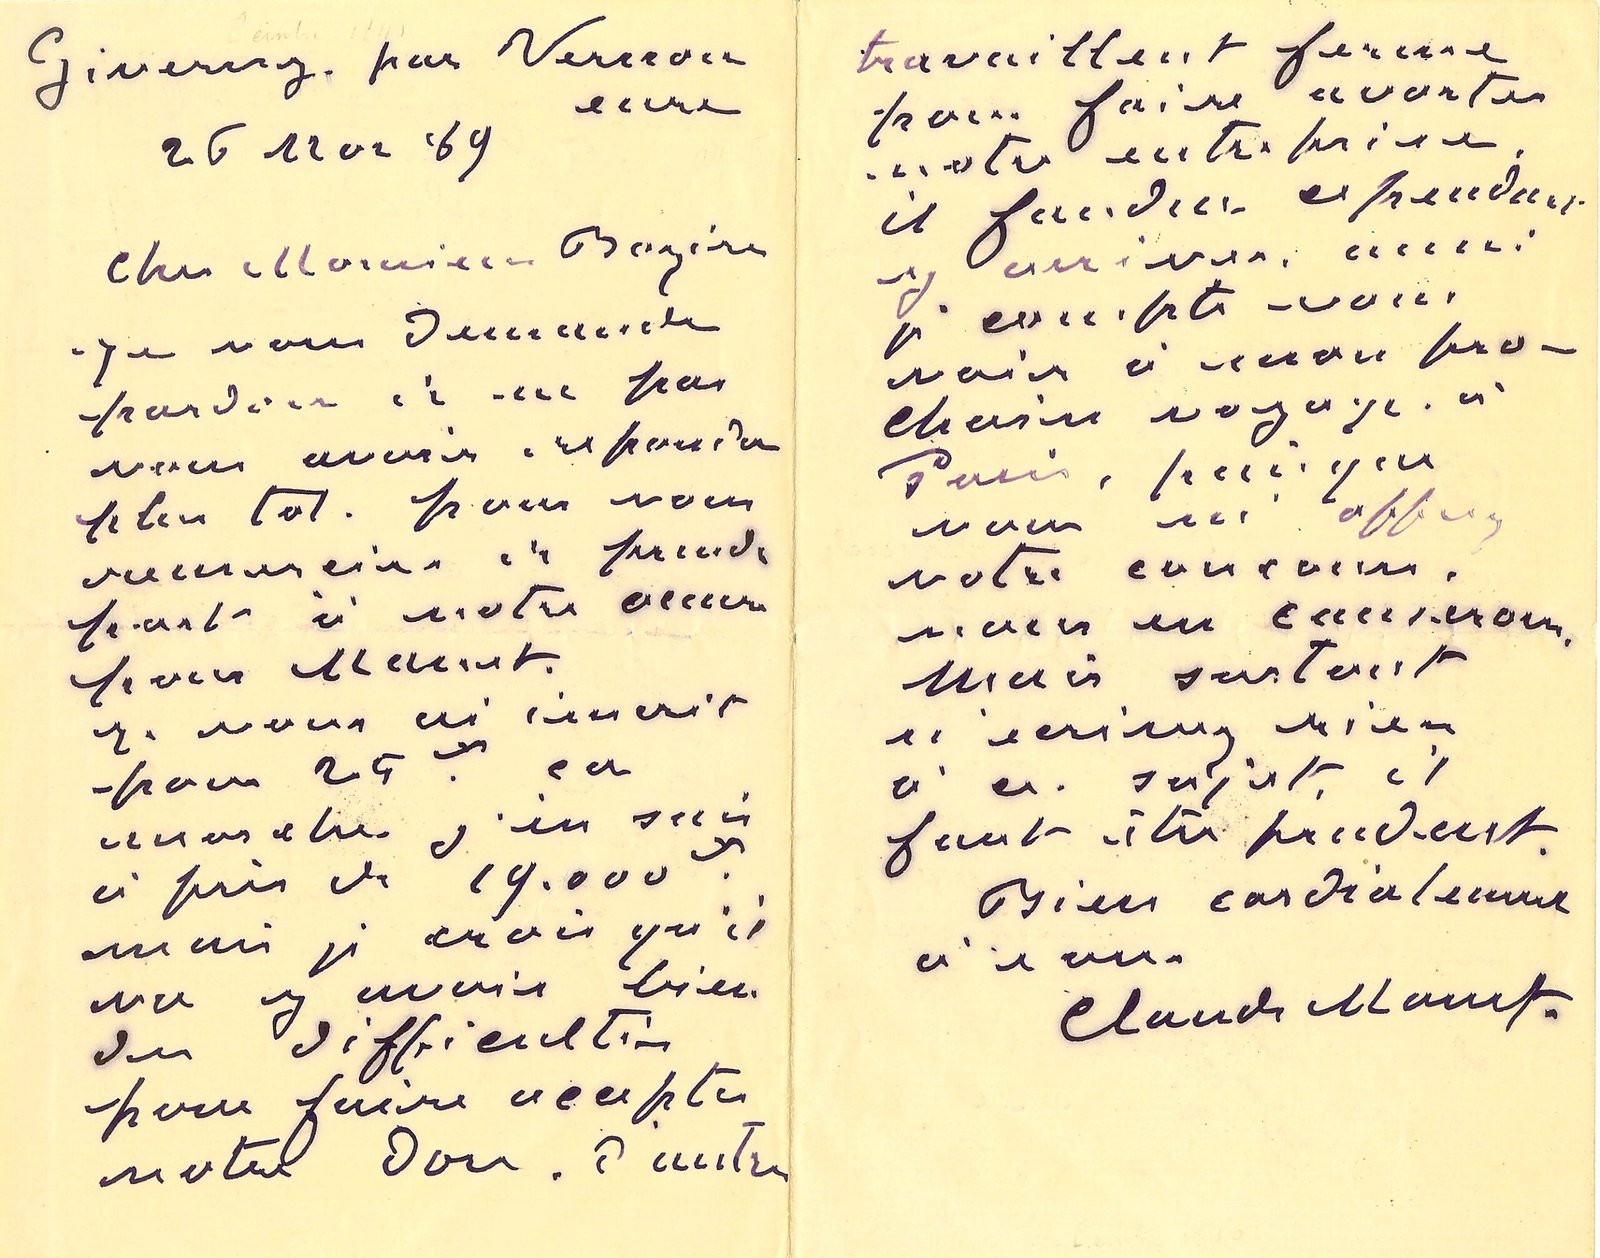 Giverny. par Vernon
eure
26 Nov 89
Cher Monsieur Bazire
je vous demande
pardon de ne pas
vous avoir repondu
plus tot. pour vous
remercier de prendre
part à notre œuvre
pour Manet.
je vous ai inscrit
pour 25 f. ca
marche j'en suis
à près de 19.000 f.
mais je crois qu'il
va y avoir bien
des difficultés
pour faire accepter
notre don. d'autres
travaillent ferme
pour faire avorter
notre entreprise.
il faudra cependant
y arriver. aussi
je compte vous
voir à mon pro-
chain voyage. à
Paris, puisque
vous m'offrez
votre concours.
nous en causerons.
Mais surtout
n'ecrivez rien
à ce sujet, il
faut être prudent.
Bien cordialement
à vous.
Claude Monet.